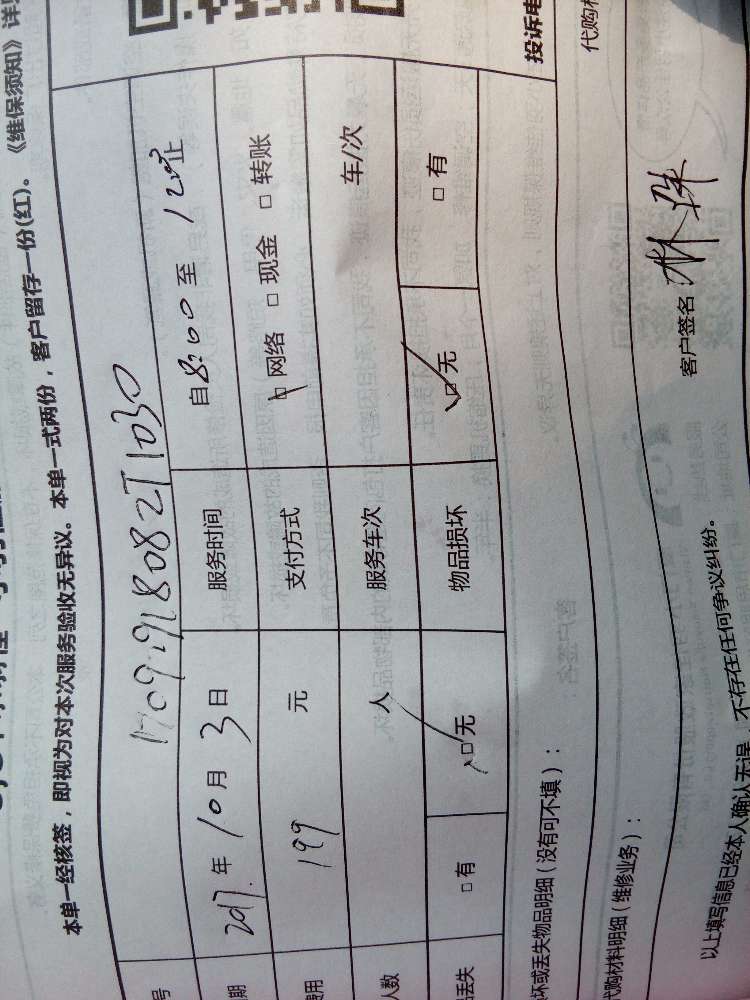 本单一经核签，即视为对本次服务验收无异议。本单一式两份，客户留存一份(红)。《维保须知》详
号
期 2017.年10月3日 服务时间 自8:00至12:00止
费用 199 元 支付方式 网络 □现金 □转账
人数 人 服务车次 车/次
品丢失 □有 □无 物品损坏 □无 □有
坏或丢失物品明细（没有可不填）：
代购材料明细（维修业务）：
以上填写信息已经本人确认无误，不存在任何争议纠纷。
客户签名
投诉电
代购材